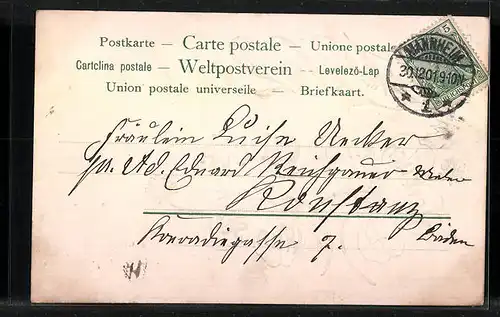 Postkarte – Carte postale – Unione postale
Cartolina postale – Weltpostverein -- Levelező-Lap
Union postale universelle – Briefkaart.
5
MANNHEIM
30.12.01.9-10N.
* 1 *
Fräulein Luise Uecker
pr. Ad. Eduard Reichgauer Maler
Konstanz
Konradigasse 7. Baden